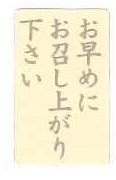 お早めに
お召し上がり
下さい